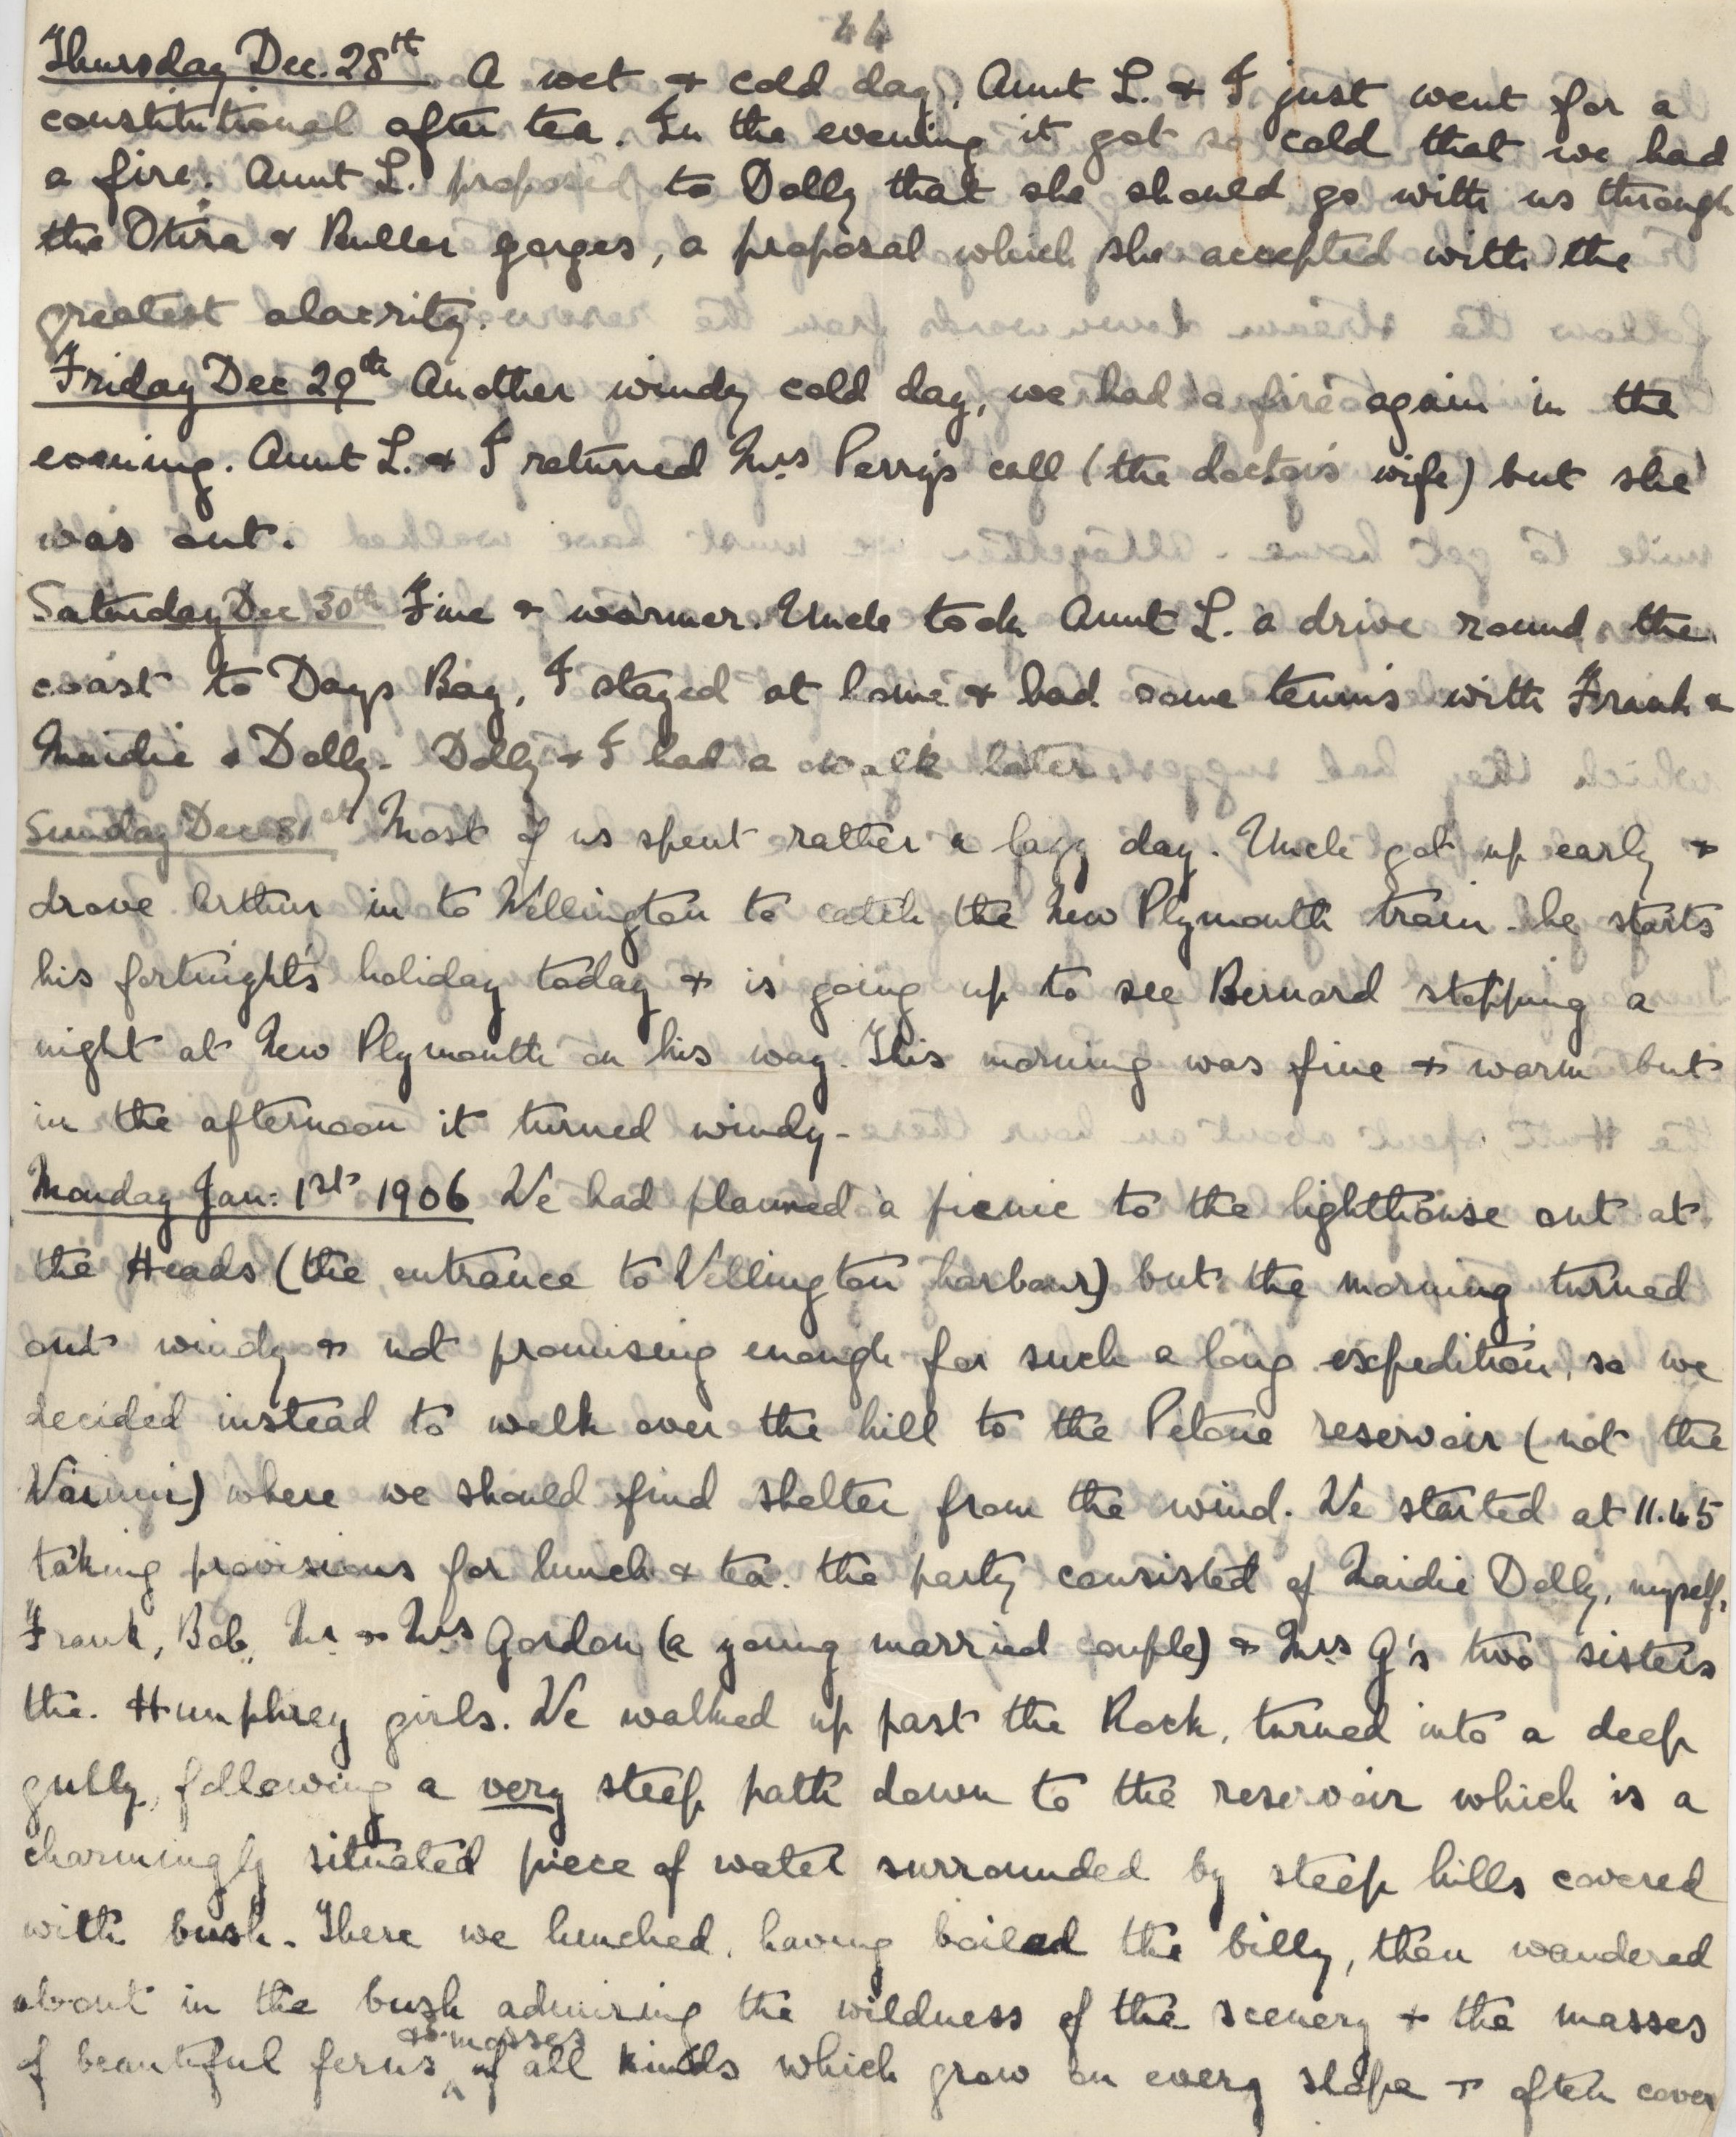 44
Thursday Dec. 28th A wet & cold day, Aunt L. & I just went for a
constitutional after tea. In the evening it got so cold that we had
a fire. Aunt L. proposed to Dolly that she should go with us through
the Otira & Buller gorges, a proposal which she accepted with the
greatest alacrity.
Friday Dec 29th Another windy cold day, we had a fire again in the
evening. Aunt L. & I returned Mrs Perry's call (the doctor's wife) but she
was out.
Saturday Dec 30th Fine & warmer. Uncle took Aunt L. a drive round the
coast to Days Bay, I stayed at home & had some tennis with Frank &
Maidie & Dolly. Dolly & I had a walk later.
Sunday Dec 31st Most of us spent rather a lazy day. Uncle got up early &
drove Arthur in to Wellington to catch the New Plymouth train. he starts
his fortnight's holiday today & is going up to see Bernard stopping a
night at New Plymouth on his way. This morning was fine & warm but
in the afternoon it turned windy.
Monday Jan: 1st 1906 We had planned a picnic to the lighthouse out at
the Heads (the entrance to Wellington harbour) but the morning turned
out windy & not promising enough for such a long expedition, so we
decided instead to walk over the hill to the Petone reservoir (not the
) where we should find shelter from the wind. We started at 11.45
taking provisions for lunch & tea. the party consisted of Maidie Dolly, myself,
Frank, Bob, Mr & Mrs Gordon (a young married couple) & Mrs G's two sisters
the Humphrey girls. We walked up past the Rock, turned into a deep
gully, following a very steep path down to the reservoir which is a
charmingly situated piece of water surrounded by steep hills covered
with bush. There we lunched, having boiled the billy, then wandered
about in the bush admiring the wildness of the scenery & the masses
of beautiful ferns & mosses of all kinds which grow on every slope & often cover